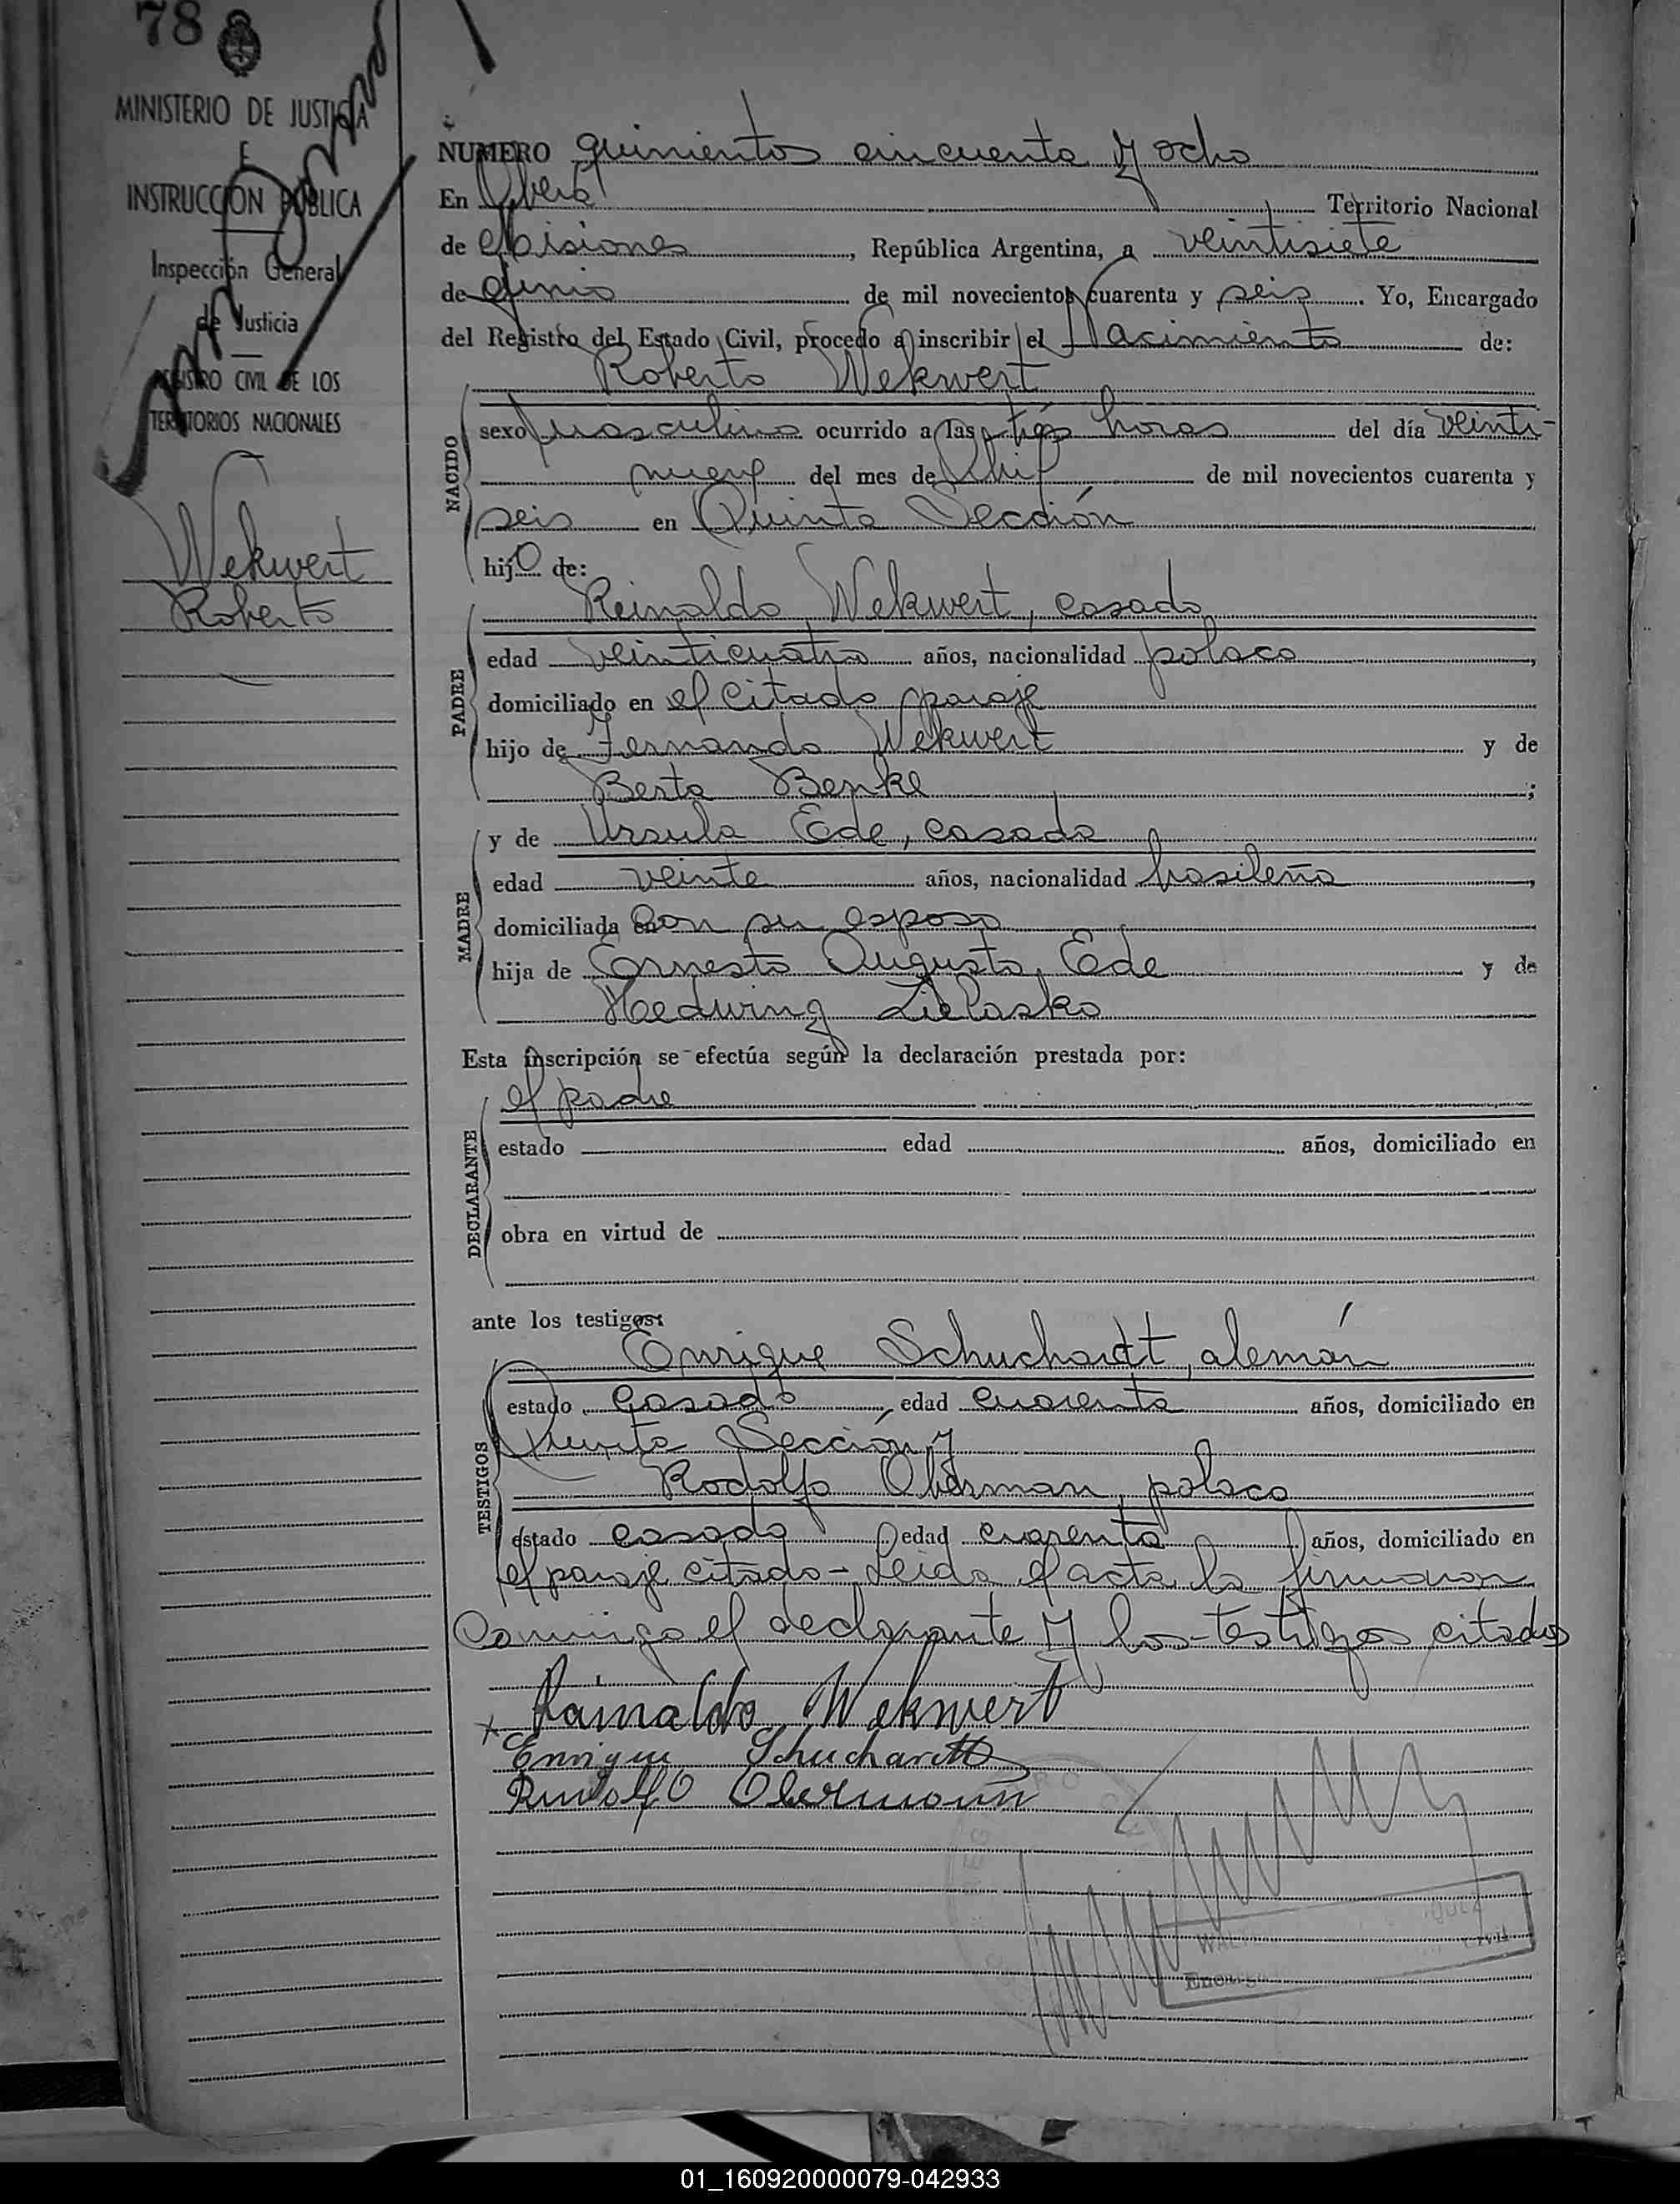 78
MINISTERIO DE JUSTICIA
E
INSTRUCCIÓN PÚBLICA
Inspección General
de Justicia
REGISTRO CIVIL DE LOS
TERRITORIOS NACIONALES
Wekwert
Roberto
NUMERO quinientos cincuenta y ocho
En Oberá Territorio Nacional
de Misiones, República Argentina, a veintisiete
de Junio de mil novecientos cuarenta y seis. Yo, Encargado
del Registro del Estado Civil, procedo a inscribir el Nacimiento de:
Roberto Wekwert
NACIDO
sexo masculino ocurrido a las tres horas del día veinti-
nueve del mes de Abril de mil novecientos cuarenta y
seis en Quinta Sección
hijo de:
PADRE
Reinaldo Wekwert, casado
edad veinticuatro años, nacionalidad polaco,
domiciliado en el citado paraje
hijo de Fernando Wekwert y de
Berta Benke;
MADRE
y de Ursula Ede, casada
edad veinte años, nacionalidad brasileña,
domiciliada con su esposo
hija de Ernesto Augusto Ede y de
Hedwing Lielasko
Esta inscripción se efectúa según la declaración prestada por:
DECLARANTE
el padre
estado edad años, domiciliado en
obra en virtud de
ante los testigos:
TESTIGOS
Enrique Schuchardt, alemán
estado casado, edad cuarenta años, domiciliado en
Quinta Sección y
Rodolfo Oberman, polaco
estado casado edad cuarenta años, domiciliado en
el paraje citado - Leída el acta la firmaron
conmigo el declarante y los testigos citados
x Rainaldo Wekwert
Enrique Schuchardt
Rudolfo Obermann
Civil
01_160920000079-042933